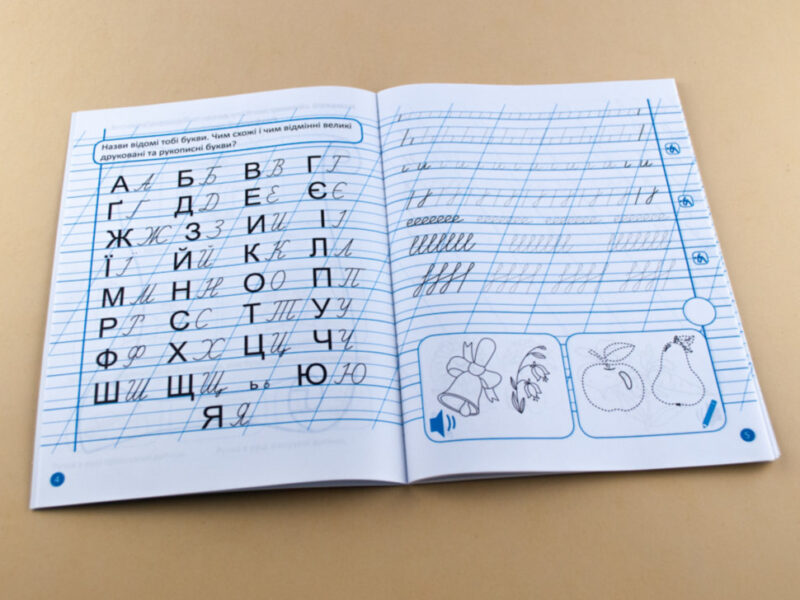 Назви відомі тобі букви. Чим схожі і чим відмінні великі
друковані та рукописні букви?
А А Б Б В В Г Г
Ґ Ґ Д Д Е Е Є Є
Ж Ж З З И И І І
Ї Ї Й Й К К Л Л
М М Н Н О О П П
Р Р С С Т Т У У
Ф Ф Х Х Ц Ц Ч Ч
Ш Ш Щ Щ ь ь Ю Ю
Я Я
4
5